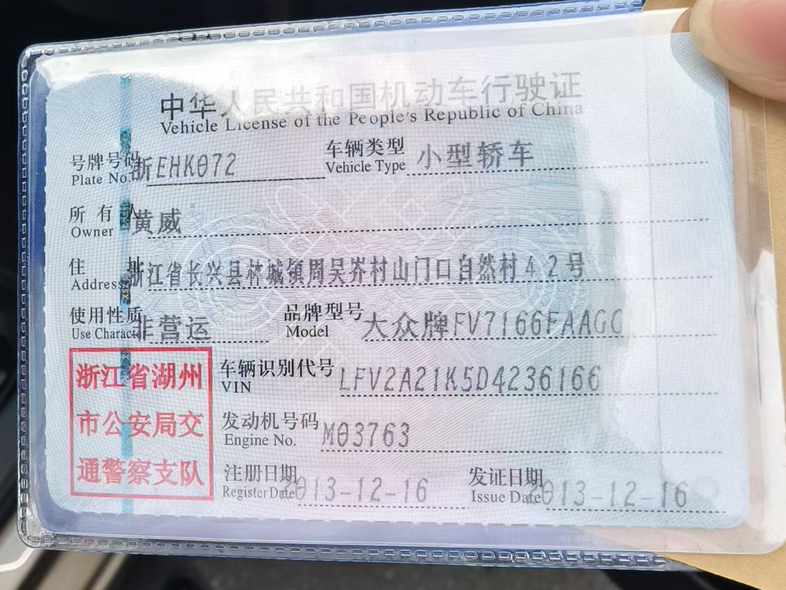 中华人民共和国机动车行驶证
Vehicle License of the People's Republic of China
号牌号码 浙EHK072 车辆类型 小型轿车
Plate No. Vehicle Type
所有人 黄威
Owner
住址 浙江省长兴县林城镇周吴岕村山门口自然村42号
Address
使用性质 非营运 品牌型号 大众牌FV7166FAAGG
Use Character Model
浙江省湖州
市公安局交
通警察支队
车辆识别代号 LFV2A21K5D4236166
VIN
发动机号码 M03763
Engine No.
注册日期 2013-12-16 发证日期 2013-12-16
Register Date Issue Date